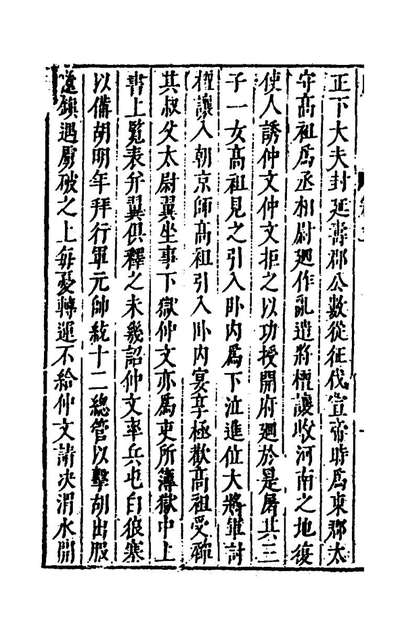 正下大夫封延壽郡公數從征伐宣帝時爲東郡太
守高祖爲丞相尉廻作亂遣將檀讓收河南之地復
使人誘仲文仲文拒之以功授開府廻於是屠其三
子一女高祖見之引入卧内爲下泣進位大將軍討
檀讓入朝京師高祖引入卧内宴享極歡高祖受禪
其叔父太尉翼坐事下獄仲文亦爲吏所簿獄中上
書上覧表并翼俱釋之未幾詔仲文率兵屯白狼塞
以備胡明年拜行軍元帥統十二總管以擊胡出服
遠鎮遇虜破之上每憂轉運不給仲文請决渭水開